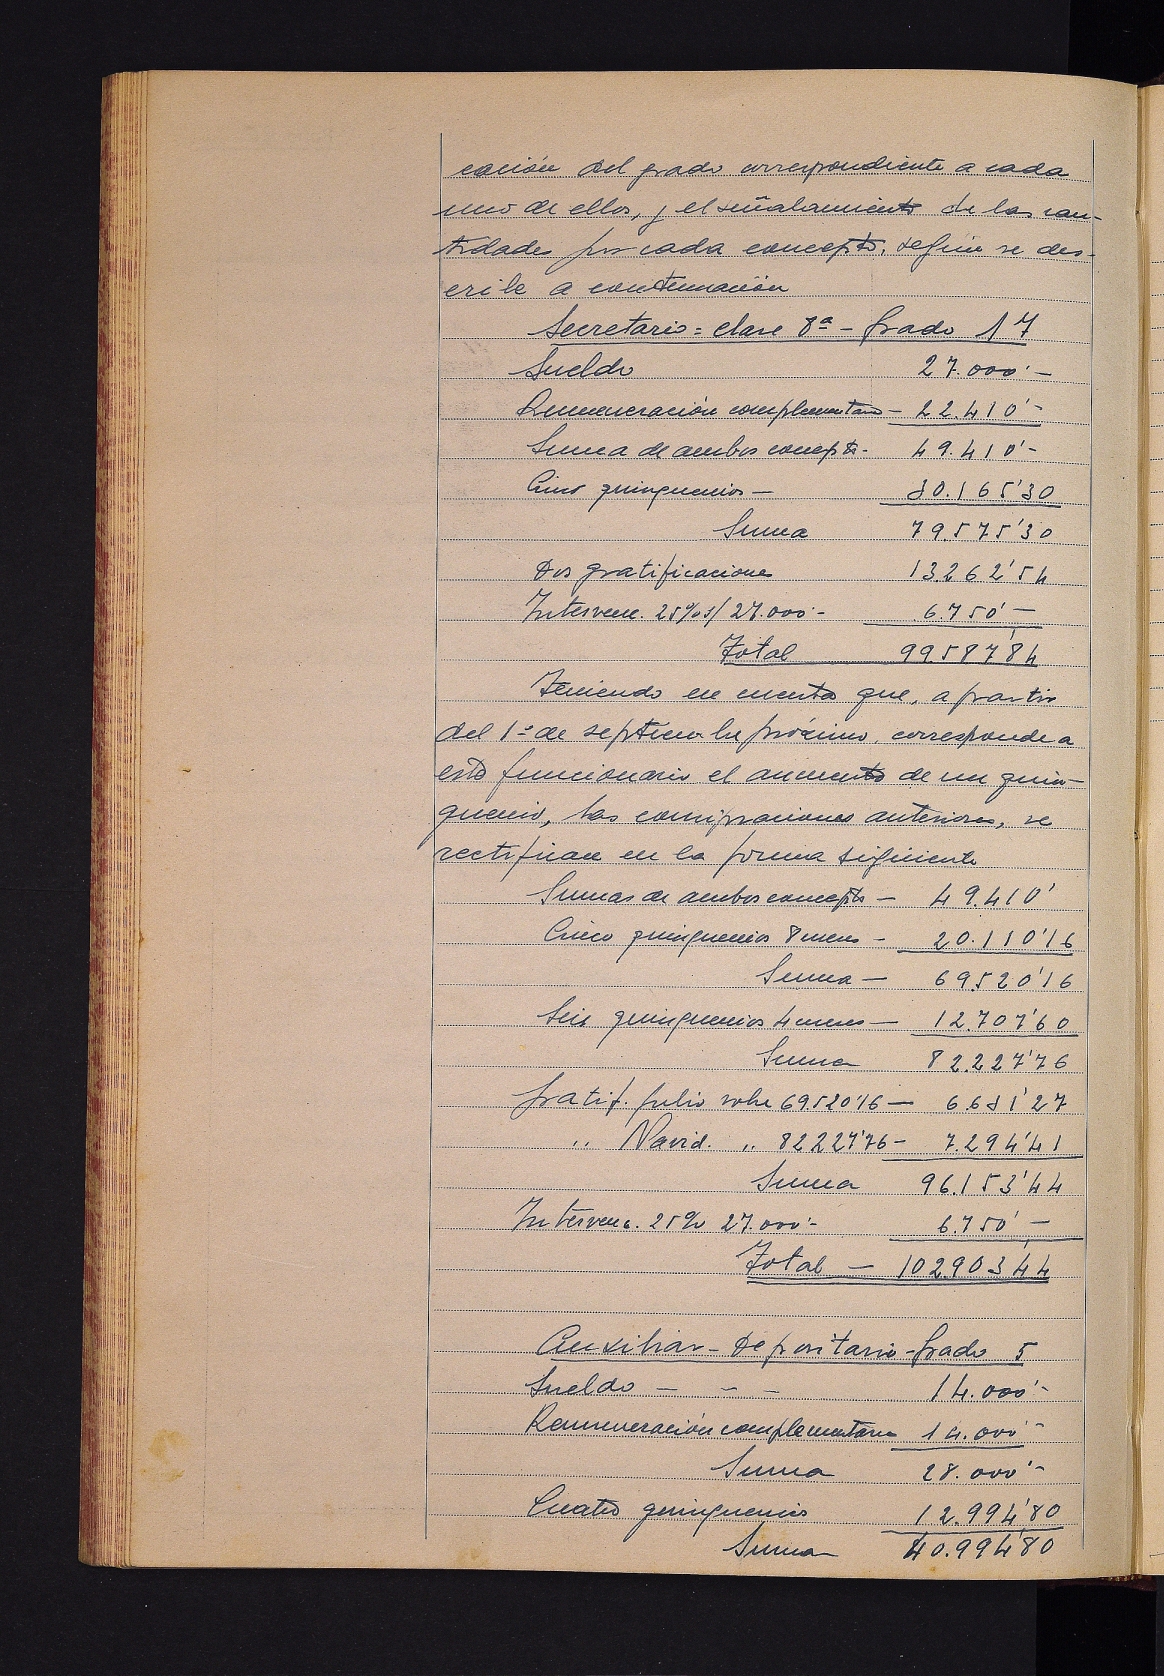 cación del grado correspondiente a cada
uno de ellos, y el señalamiento de las can-
tidades por cada concepto, según se des-
cribe a continuación
Secretario = clase 8ª - Grado 17
Sueldo 27.000'-
Remuneración complementaria - 22.410'-
Suma de ambos concepts. 49.410'-
Cinco quinquenios - 30.165'30
Suma 79.575'30
Dos gratificaciones 13262'54
Interven. 25% s/ 27.000'- 6.750'-
Total 99587'84
Teniendo en cuenta que, a partir
del 1º de septiembre próximo, corresponde a
este funcionario el aumento de un quin-
quenio, las consignaciones anteriores, se
rectifican en la forma siguiente
Sumas de ambos conceptos - 49.410'
Cinco quinquenios 8 meses - 20.110'16
Suma - 69520'16
Seis quinquenios 4 meses - 12.707'60
Suma 82.227'76
Gratif. Julio sobre 69520'16 - 6.631'27
" Navid. " 82227'76 - 7.294'41
Suma 96.153'44
Intervenc. 25% 27.000'- 6.750'-
Total - 102903'44
Auxiliar - Depositario - Grado 5
Sueldo - - - 14.000'-
Remuneración complementaria 14.000'-
Suma 28.000'-
Cuatro quinquenios 12.994'80
Suma 40.994'80